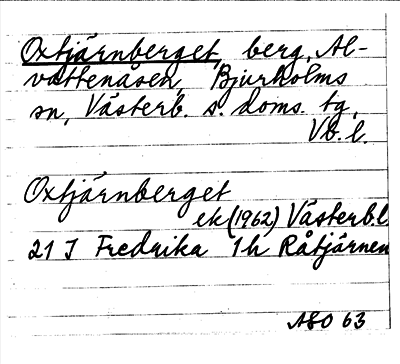 Oxtjärnberget, berg, Al-
vattenåsen, Bjurholms
sn, Västerb. s. doms. tg,
Vb. l.
Oxtjärnberget
ek (1962) Västerb.l
21 J Fredrika 1h Råtjärnen
ASO 63